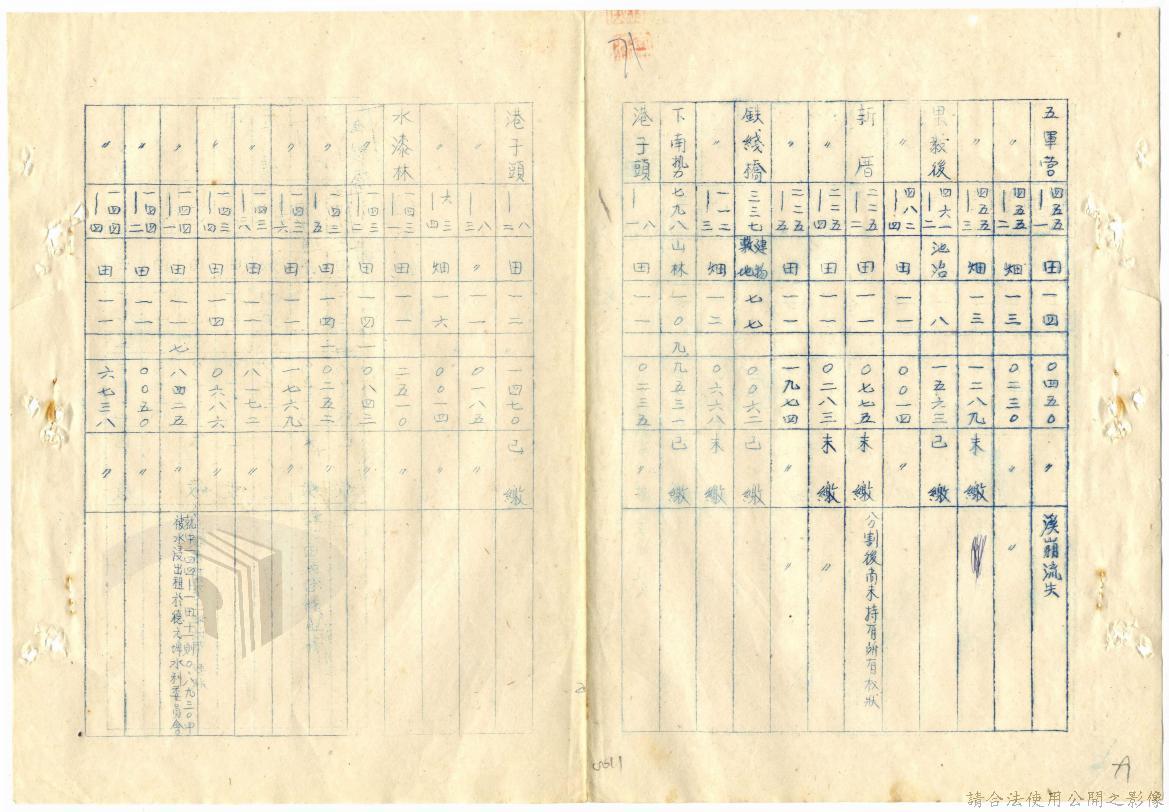 五軍营 四五五｜一 田 一四 〇四五〇 〃 溪崩流失
〃 四五五｜二 畑 一三 〇二三〇 〃 〃
〃 四五五｜三 畑 一三 一二八九 未繳
果毅後 四六一｜二 池沼 八 一五六三 已繳
〃 四八四｜二 田 一一 〇〇一四 〃
新厝 二二五｜五 田 一一 〇七七五 未繳 分割後尚未持有所有权狀
〃 二二五｜四 田 一一 〇二八三 未繳 〃
〃 二二五｜五 田 一一 一九七四 〃 〃
鉄綫橋 三三七 建物敷地 七七 〇〇六二 已繳
〃 一一二｜三 畑 一二 〇六六八 未繳
下南勢 七九八 山林 一〇 九九五三一 已繳
港子頭 一八｜一 田 一一 〇二三五 〃
港子頭 一八｜二 田 一二 一四七〇 已繳
〃 一八｜三 〃 〇一八五 〃
〃 六三｜四 畑 一六 〇〇一四 〃
水漆林 一四三｜一 田 一一 二五一〇 〃
〃 一四三｜二 田 一四 〇八四三 〃
〃 一四三｜五 田 一四 二〇二五二 〃
〃 一四三｜六 田 一一 一七六九 〃
〃 一四三｜八 田 一一 八一七二 〃
〃 一四三｜四 田 一四 〇六八六 〃
〃 一四四｜一 田 一一 七八四二五 〃 被水浸出租於德元埤水利委員會
〃 一四四｜二 田 一一 〇〇五〇 〃
〃 一四四｜四 田 一一 六七三八 〃
請合法使用公開之影像